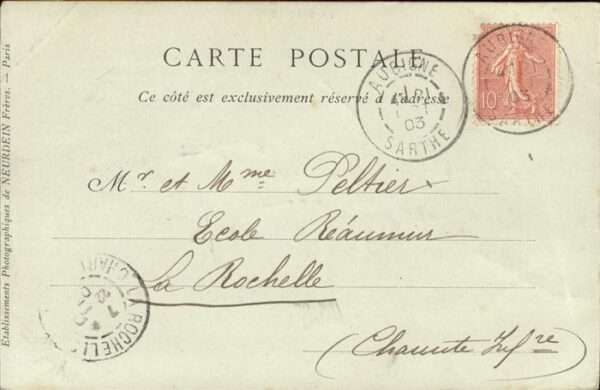 CARTE POSTALE
Ce côté est exclusivement réservé à l'adresse
AUBIGNÉ
03
SARTHE
AUBIGNÉ
10
SARTHE
Mr. et Mme Peltier
Ecole Réaumur
La Rochelle
(Charente Infre
LA ROCHELLE
Etablissements Photographiques de NEURDEIN Frères. — Paris